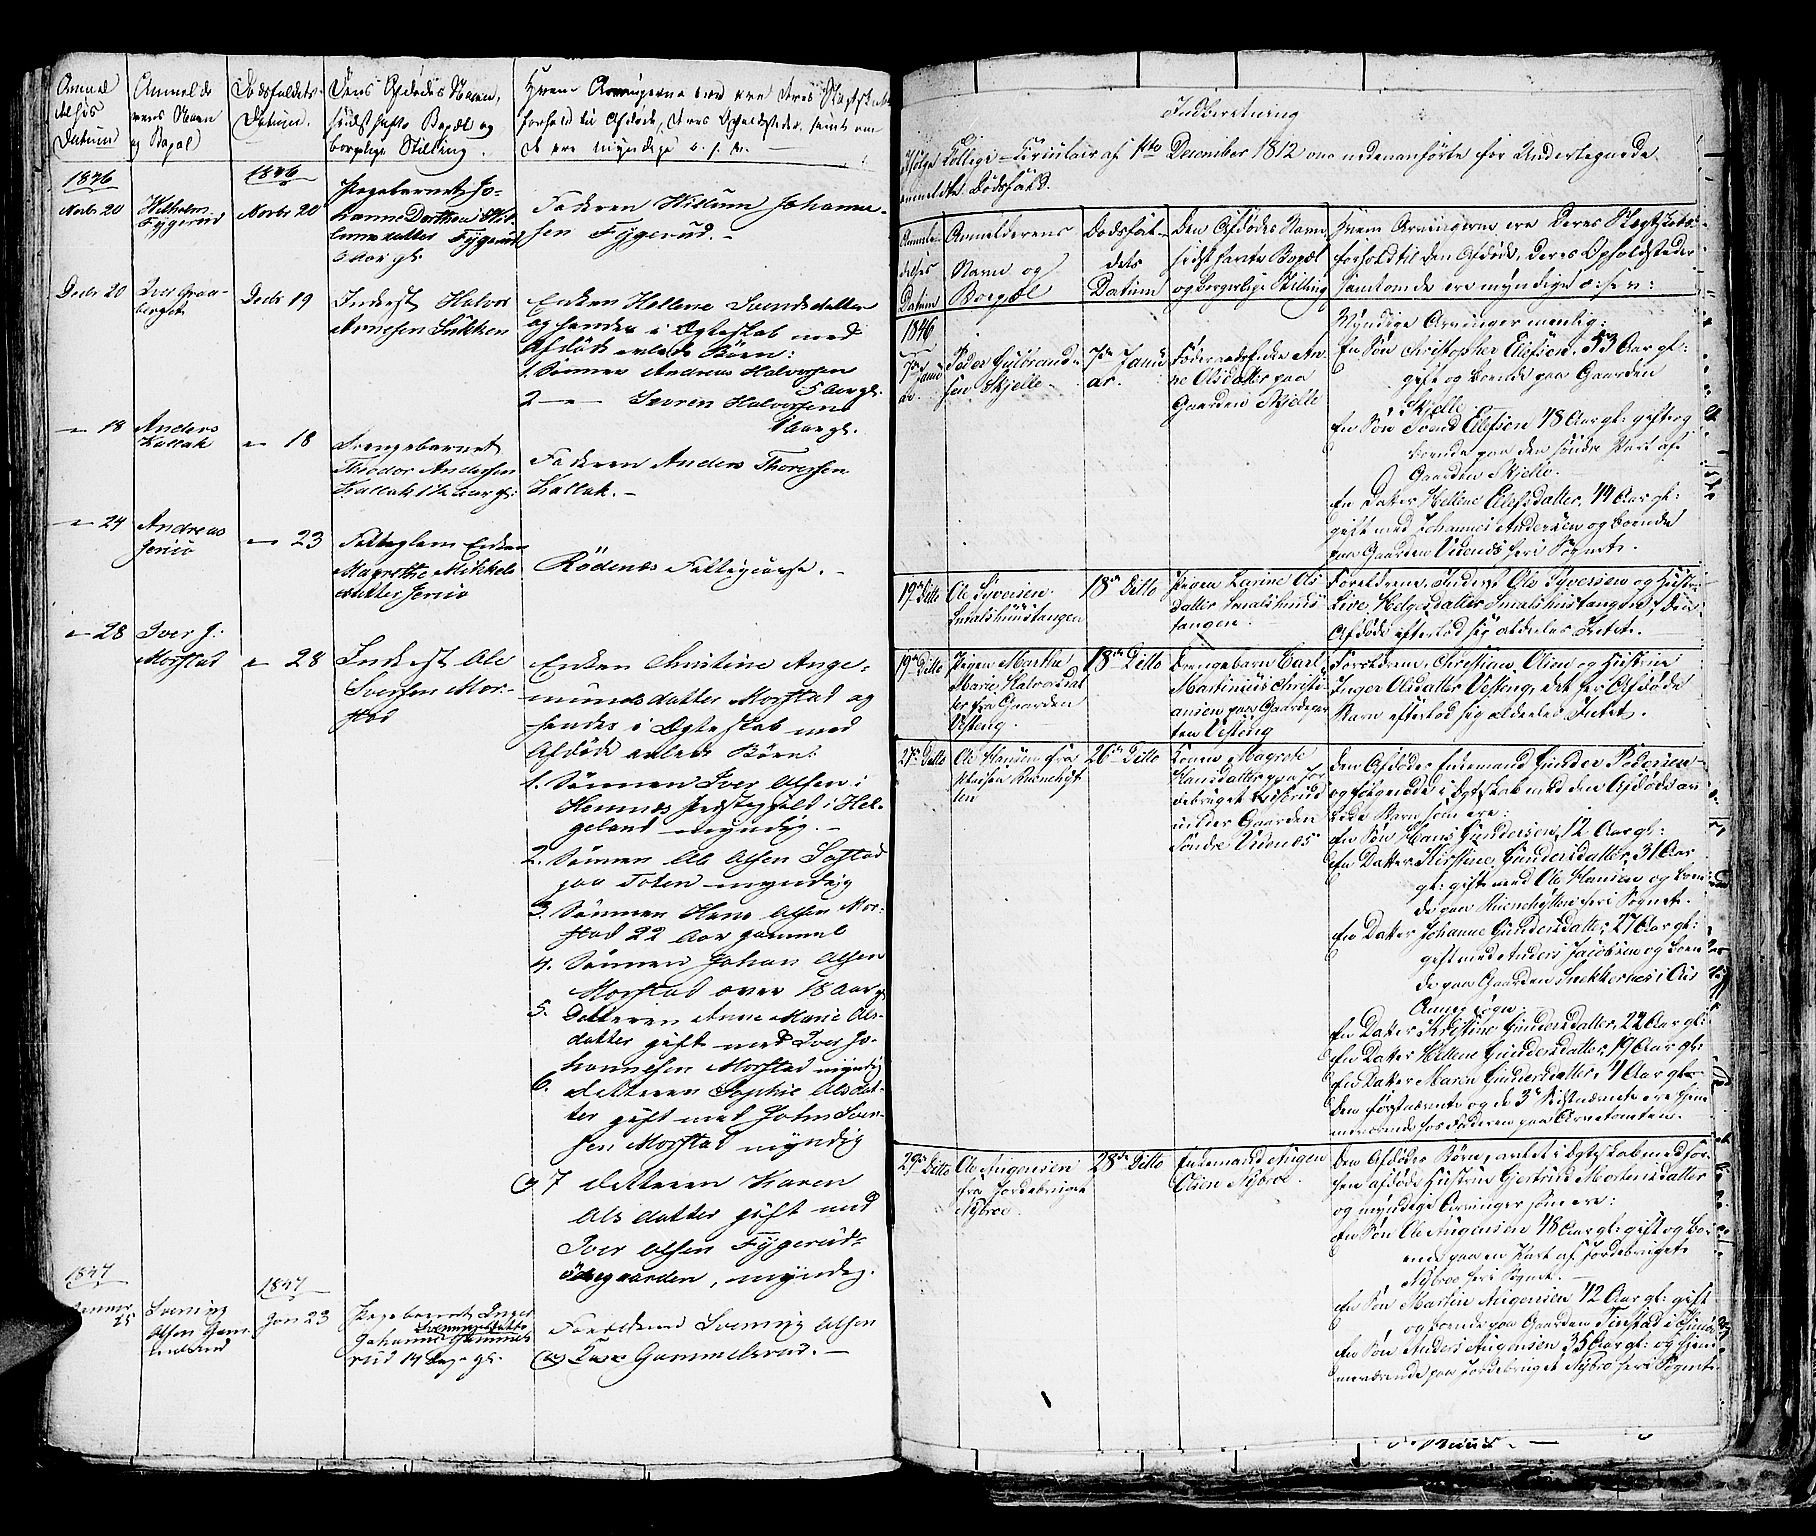 Anmel
delses
Datum
Anmelde
rens Navn
og Bopæl
Dødsfaldets
Datum.
Den Afdødes Navn,
sidst hafte Bopæl og
borgelige Stilling.
Hvem Arvingerne ere deres
forhold til Afdøde, deres Opholdsteder, samt om
de ere myndige o. s. v.
1846
Novbr 20
Wilhelm
Fÿgerud
1846
Novbr 20
Pigebarnet Jo-
hanne Dorthea
datter Fÿgerud
Aar gl.
Faderen Johanne-
sen Fÿgerud.-
Decbr 20
Decbr 19
Inderst Halvor
Arnesen
Enken Hellene Svendsdatter
og hendes i Ægteskab med
Afdøde avlede Børn:
1. Sønnen Andreas Halvorsen
5 Aar gl.
2 - Søren Halvorsen
Aar gl.
18
Anders
Kallak
18
Drengebarnet
Theodor Andersen
Kallak Aar gl:
Faderen Anders Thoresen
Kallak.-
24
Andreas
23
Enken
Magrethe Mikkels
datter
Rödenes Fattigcasse.-
28
Iver J:
Morstad
28
Inderst Ole
Iversen Mor-
stad
Enken Christine Ange-
mundsdatter Morstad og
hendes i Ægteskab med
Afdøde avlede Børn:
1. Sønnen Iver Olsen i
Hemnæs Præstegjeld i Hel-
geland myndig.-
2. Sønnen Ole Olsen
paa Toten myndig
3. Sønnen Hans Olsen Mor-
stad 22 Aar gammel
4. Sønnen Johan Olsen
Morstad over 18 Aar gl
5. Datteren Anne Marie Ols-
datter gift med Iver Jo-
hannesen Morstad myndig
6. Datteren Sophie Olsdat-
ter gift med John Iver-
sen Morstad myndig
og 7 Datteren Karen
Olsdatter gift med
Iver Olsen Fÿgerud-
ödegaarden, myndig.
1847
Januar
25
Svening
Olsen Gam
melsrud
1847
Jan 23
Pigebarnet Inger
Sveningsdatter
Johanne Gammels
rud 14 Dage gl.
Forældrene Svening Olsen
og Gammelsrud.-
Indberetning
ifølge Collegi-Circulair af 1ste December 1812 om nedenanførte for Undertegnede
anmeldte Dødsfald.
Anmel-
delses
Datum
Anmelderens
Navn og
Boepæl
Dødsfal-
dets
Datum
Den Afdødes Navn,
sidst havte Bopæl
og borgerlige Stilling
Hvem Arvingerne ere deres Slægtskabs-
forhold til den Afdøde, deres Opholdsteder
samt om de ere myndige o: s: v:
1846
7de Janu
ar.
Peder Gulbrand-
sen Skjelle.
7de Janu
ar.
Føderaadsenke An-
ne Olsdatter paa
Gaarden Skjelle
Myndige Arvinger nemlig:
En Søn Christopher Elefsen, 53 Aar gl:
gift og boende paa Gaarden
Skjelle
En Søn Svend Elefsen 48 Aar gl: gift og
boende paa den søndre Part af
Gaarden Skjelle.
En Datter Hellene Elefsdatter, 44 Aar gl:
gift med Johannes Andersen og boende
paa Gaarden Udenes her i Sognet.
19de Ditto
Ole Syversen
Smalshuustangen
18de Ditto
Pigen Karine Ols
datter Smalshuus
tangen
Forældrene, Inderst Ole Syversen og Hustru
Live Helgesdatter Smalshustangen; den
Afdøde efterlod sig aldeles Intet.
19de Ditto
Pigen Marthe
Marie Halvorsdat
ter fra Gaarden
Vesteng.
18de Ditto
Drengebarn Carl
Martinius Christi
ansen paa Gaardepar
ten Vesteng
Forældrene, Christian Olsen og Hustrue
Inger Olsdatter Vesteng, det her Afdøde
Barn efterlod sig aldeles Intet.
27de Ditto
Ole Hansen fra
26de Ditto
Konen Magrete
Hansdatter paa Jor
debruget
under Gaarden
Søndre Udenes
Den Afdødes Enkemand Gunder Pedersen
og følgende i Ægteskab med den Afdøde av
lede Børn som ere:
En Søn Hans Gundersen, 12 Aar gl:
En Datter Kirstine Gundersdatter, 31 Aar
gl: gift med Ole Hansen og boen-
de paa her i Sognet.
En Datter Johanne Gundersdatter, 27 Aar gl:
gift med Anders Jacobsen og boen
de paa Gaarden Snekkernes i Aur
Annexsogn.
En Datter Kristine Gundersdatter, 22 Aar gl:
En Datter Hellene Gundersdatter, 19 Aar gl:
En Datter Maren Gundersdatter, Aar gl
den førstnævnte og de 3de sidstnævnte ere hjem
meværende hos Faderen paa
29de Ditto
Ole Augensen
fra Jordebruget
Nÿbroe.
28de Ditto
Enkemand Augen
Olsen Nÿbroe.
Den Afdødes Børn, avlet i Ægteskab med for-
hen afdøde Hustrue Gjertrud Mortensdatter
og myndige Arvinger som ere:
En Søn Ole Augensen 48 Aar gl: gift og bo-
ende paa en Part af Jordebruget
Nÿbroe her i Sognet.
En Søn Martin Augensen 42 Aar gl: gift
og boende paa Gaarden
En Søn Anders Augensen 35 Aar gl: og hjem
meværende paa Jordebruget Nÿbro her i Sognet.